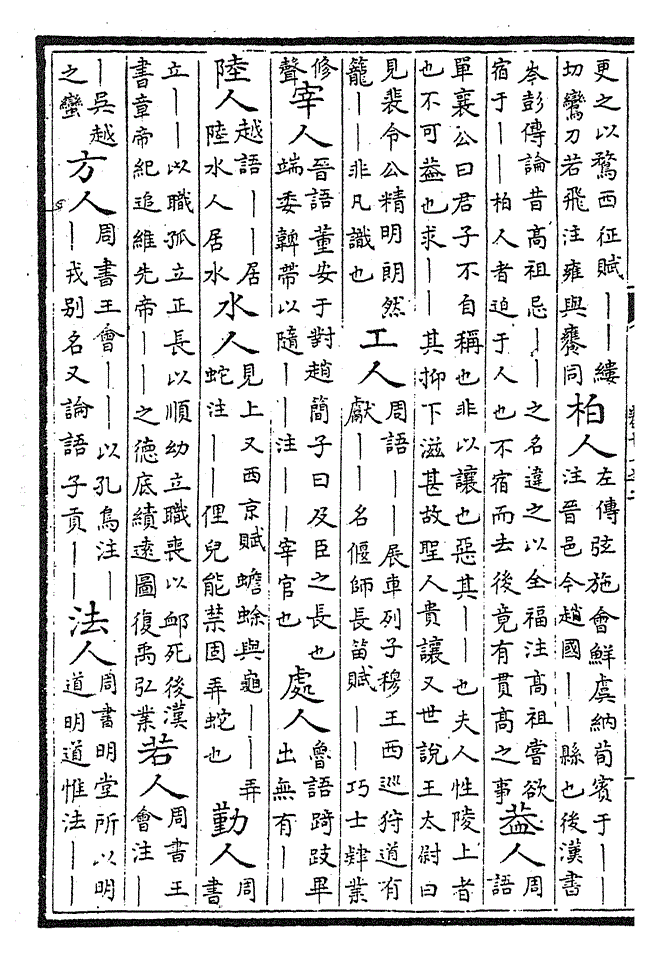 更之以鶩西征賦｜｜縷
切鸞刀若飛注雍與饔同
柏人
左傳弦施會鮮虞納荀賓于｜｜
注晉邑今趙國｜｜縣也後漢書
岑彭傳論昔高祖忌｜｜之名違之以全福注高祖嘗欲
宿于｜｜柏人者迫于人也不宿而去後竟有貫高之事
葢人
周
語
單襄公曰君子不自稱也非以讓也惡其｜｜也夫人性陵上者
也不可葢也求｜｜其抑下滋甚故聖人貴讓又世說王太尉曰
見裴令公精明朗然
籠｜｜非凡識也
工人
周語｜｜展車列子穆王西巡狩道有
獻｜｜名偃師長笛賦｜｜巧士肄業
修
聲
宰人
晉語董安于對趙簡子曰及臣之長也
端委韠帶以隨｜｜注｜｜宰官也
處人
魯語踦跂畢
出無有｜｜
陸人
越語｜｜居
陸水人居水
水人
見上又西京賦蟾蜍與龜｜｜弄
蛇注｜｜俚兒能禁固弄蛇也
勤人
周
書
立｜｜以職孤立正長以順幼立職喪以䘏死後漢
書章帝紀追維先帝｜｜之德底績遠圖復禹弘業
若人
周書王
會注｜｜
｜吳越
之蠻
方人
周書王會｜｜以孔鳥注｜
｜戎别名又論語子貢｜｜
法人
周書明堂所以明
道明道惟法｜｜